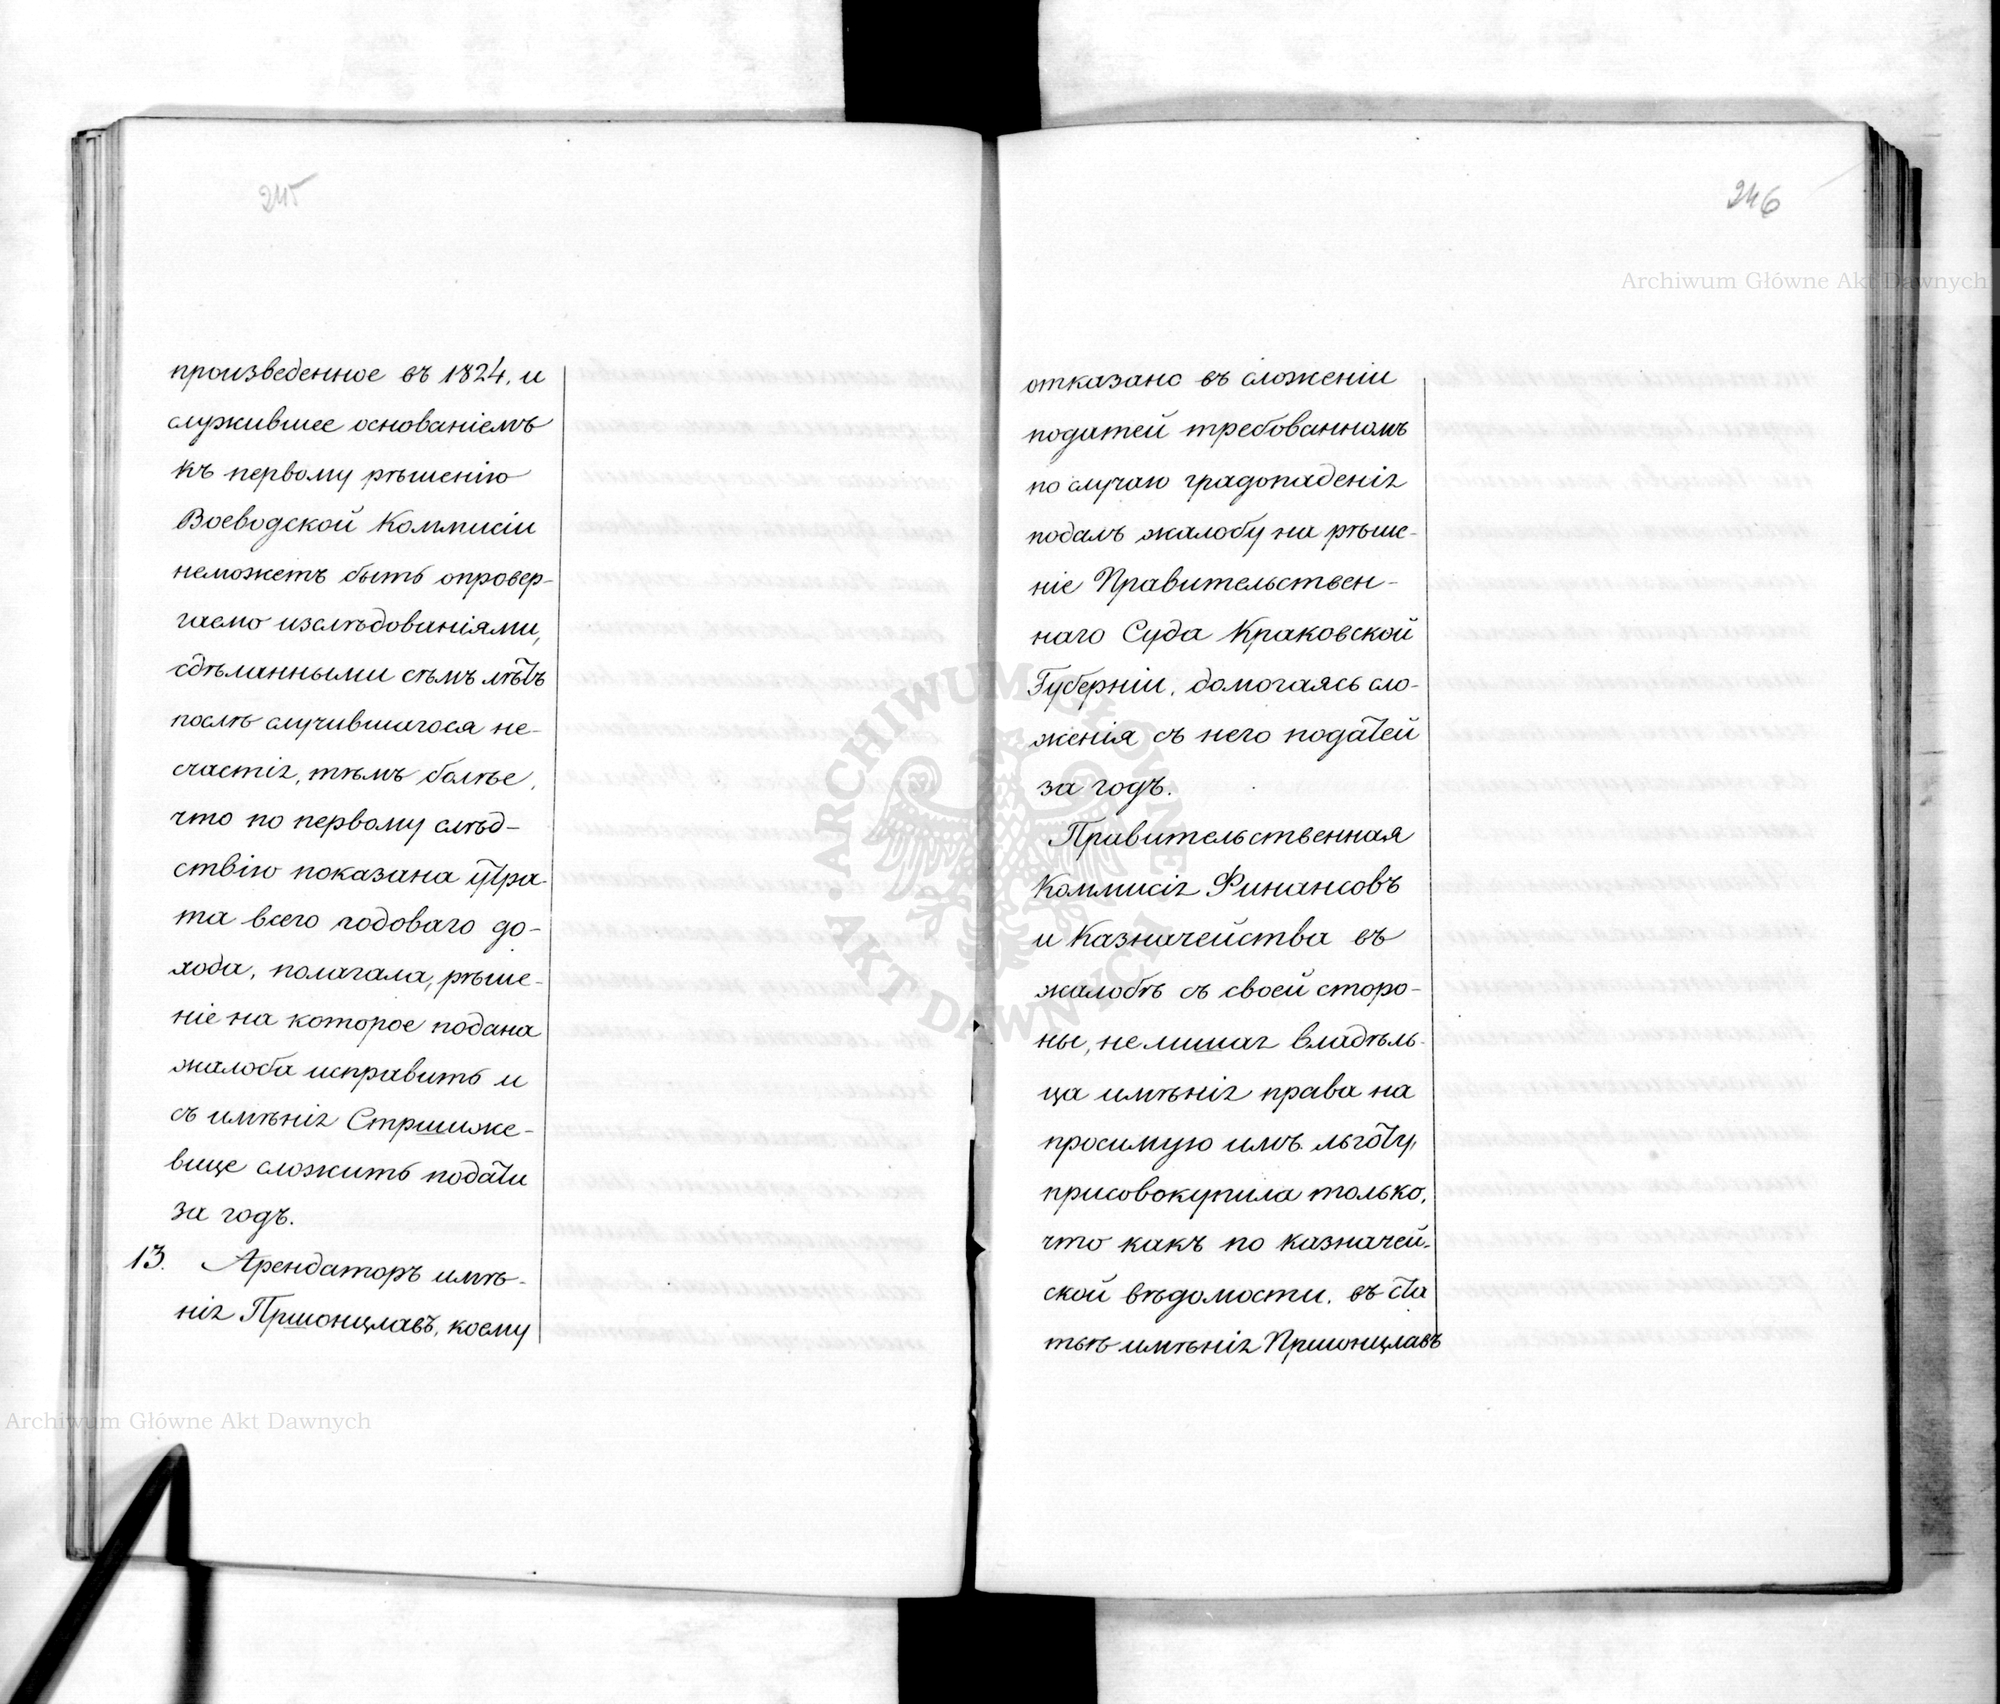 245
произведенное въ 1824. и
служившее основаніемъ
къ первому рѣшенію
Воеводской Коммисіи
неможетъ быть опровер-
гаемо изслѣдованіями,
сдѣланными сѣмъ лѣтъ
послѣ случившагося не-
счастія, тѣмъ болѣе,
что по первому слѣд-
ствію показана утра-
та всего годоваго до-
хода, полагала, рѣше-
ніе на которое подана
жалоба исправить и
съ имѣнія Стршиже-
вице сложить подати
за годъ.
13. Арендаторъ имѣ-
нія Пршонцлавъ, коему
246
отказано въ сложеніи
податей требованномъ
по случаю градопаденія
подалъ жалобу на рѣше-
ніе Правительствен-
наго Суда Краковской
Губерніи, домогаясь сло-
женія съ него податей
за годъ.
Правительственная
Коммисія Финансовъ
и Казначейства въ
жалобѣ съ своей сторо-
ны, не лишая владѣль-
ца имѣнія права на
просимую имъ льготу,
присовокупила только,
что какъ по казначей-
ской вѣдомости, въ ста
тьѣ имѣнія Пршонцлавъ
Archiwum Główne Akt Dawnych
Archiwum Główne Akt Dawnych
ARCHIWUM GŁÓWNE AKT DAWNYCH